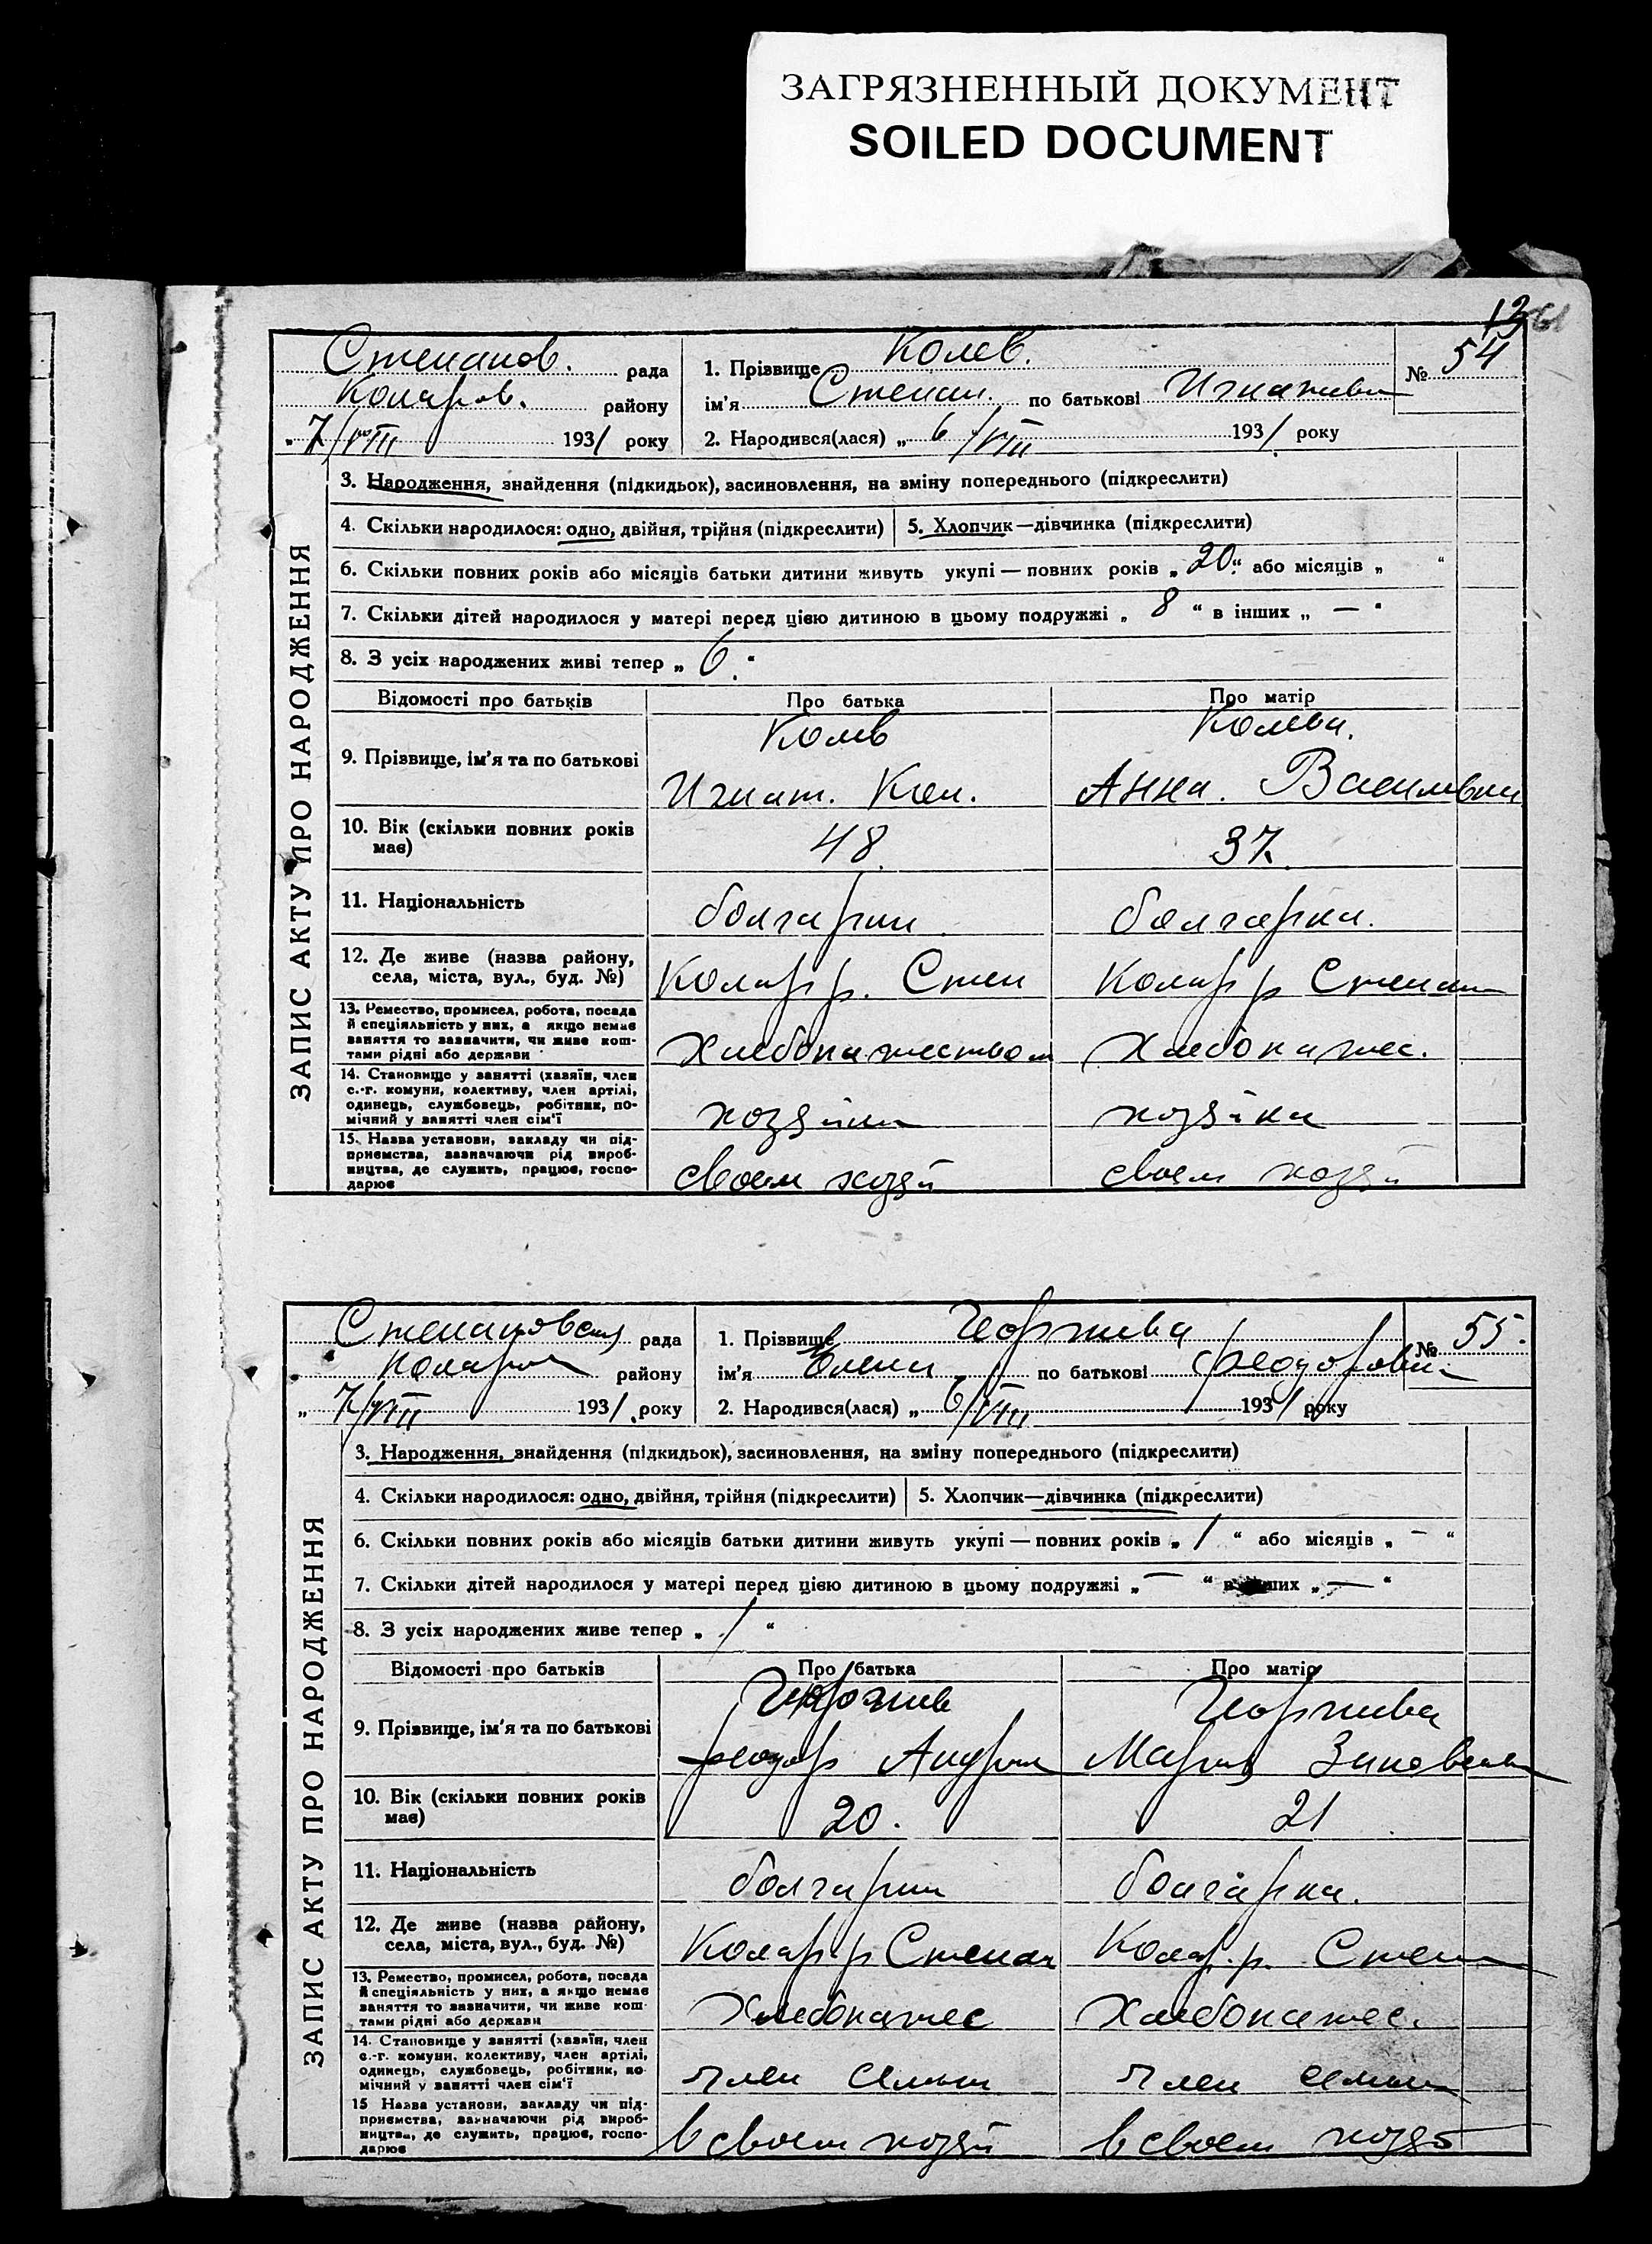 ЗАГРЯЗНЕННЫЙ ДОКУМЕНТ
SOILED DOCUMENT
13 61
Степанов. рада
Коларов. району
„ 7/VIII 1931 року
1. Прізвище Колев.
ім'я Степан. по батькові Игнатьеви
2. Народився(лася) „ 6/VIII 1931 року
№ 54
ЗАПИС АКТУ ПРО НАРОДЖЕННЯ
3. Народження, знайдення (підкидьок), засиновлення, на зміну попереднього (підкреслити)
4. Скільки народилося: одно, двійня, трійня (підкреслити) 5. Хлопчик—дівчинка (підкреслити)
6. Скільки повних років або місяців батьки дитини живуть укупі — повних років „ 20 “ або місяців „ “
7. Скільки дітей народилося у матері перед цією дитиною в цьому подружжі „ 8 “ в інших „ — “
8. З усіх народжених живі тепер „ 6. “
Відомості про батьків Про батька Про матір
9. Прізвище, ім'я та по батькові
Колев Колева.
Игнат. Кол. Анна. Васильевна
10. Вік (скільки повних років
має)
48. 37.
11. Національність болгарин болгарка.
12. Де живе (назва району,
села, міста, вул., буд. №)
Колар р. Степ Колар р Степан
13. Ремество, промисел, робота, посада
й спеціяльність у них, а якщо немає
заняття то зазначити, чи живе кош-
тами рідні або держави
Хлебопашеством Хлебопашес.
14. Становище у занятті (хазяїн, член
с.-г. комуни, колективу, член артілі,
одинець, службовець, робітник, по-
мічний у занятті член сім'ї
хозяин хозяйка
15. Назва установи, закладу чи під-
приємства, зазначаючи рід вироб-
ництва, де служить, працює, госпо-
дарює
своем хозяй своем хозяй
Степановская рада
Колар району
„ 7/VIII 1931. року
1. Прізвище Георгиева
ім'я Елена по батькові Феодоровна
2. Народився(лася) „ 6/VIII 1931 року
№ 55.
ЗАПИС АКТУ ПРО НАРОДЖЕННЯ
3. Народження, знайдення (підкидьок), засиновлення, на зміну попереднього (підкреслити)
4. Скільки народилося: одно, двійня, трійня (підкреслити) 5. Хлопчик—дівчинка (підкреслити)
6. Скільки повних років або місяців батьки дитини живуть укупі — повних років „ 1 “ або місяців „ — “
7. Скільки дітей народилося у матері перед цією дитиною в цьому подружжі „ — “ в інших „ — “
8. З усіх народжених живе тепер „ 1 “
Відомості про батьків Про батька Про матір
9. Прізвище, ім'я та по батькові
Георгиев Георгиева
Феодор Андреев Мария Зиновьевн
10. Вік (скільки повних років
має)
20. 21
11. Національність болгарин болгарка.
12. Де живе (назва району,
села, міста, вул., буд. №)
Колар р Степан Колар. р. Степан
13. Ремество, промисел, робота, посада
й спеціяльність у них, а якщо немає
заняття то зазначити, чи живе кош-
тами рідні або держави
Хлебопашес Хлебопашес.
14. Становище у занятті (хазяїн, член
с.-г. комуни, колективу, член артілі,
одинець, службовець, робітник, по-
мічний у занятті член сім'ї
член семьи член семьи
15 Назва установи, закладу чи під-
приємства, зазначаючи рід вироб-
ництва, де служить, працює, госпо-
дарює
в своем хозяй в своем хозяй